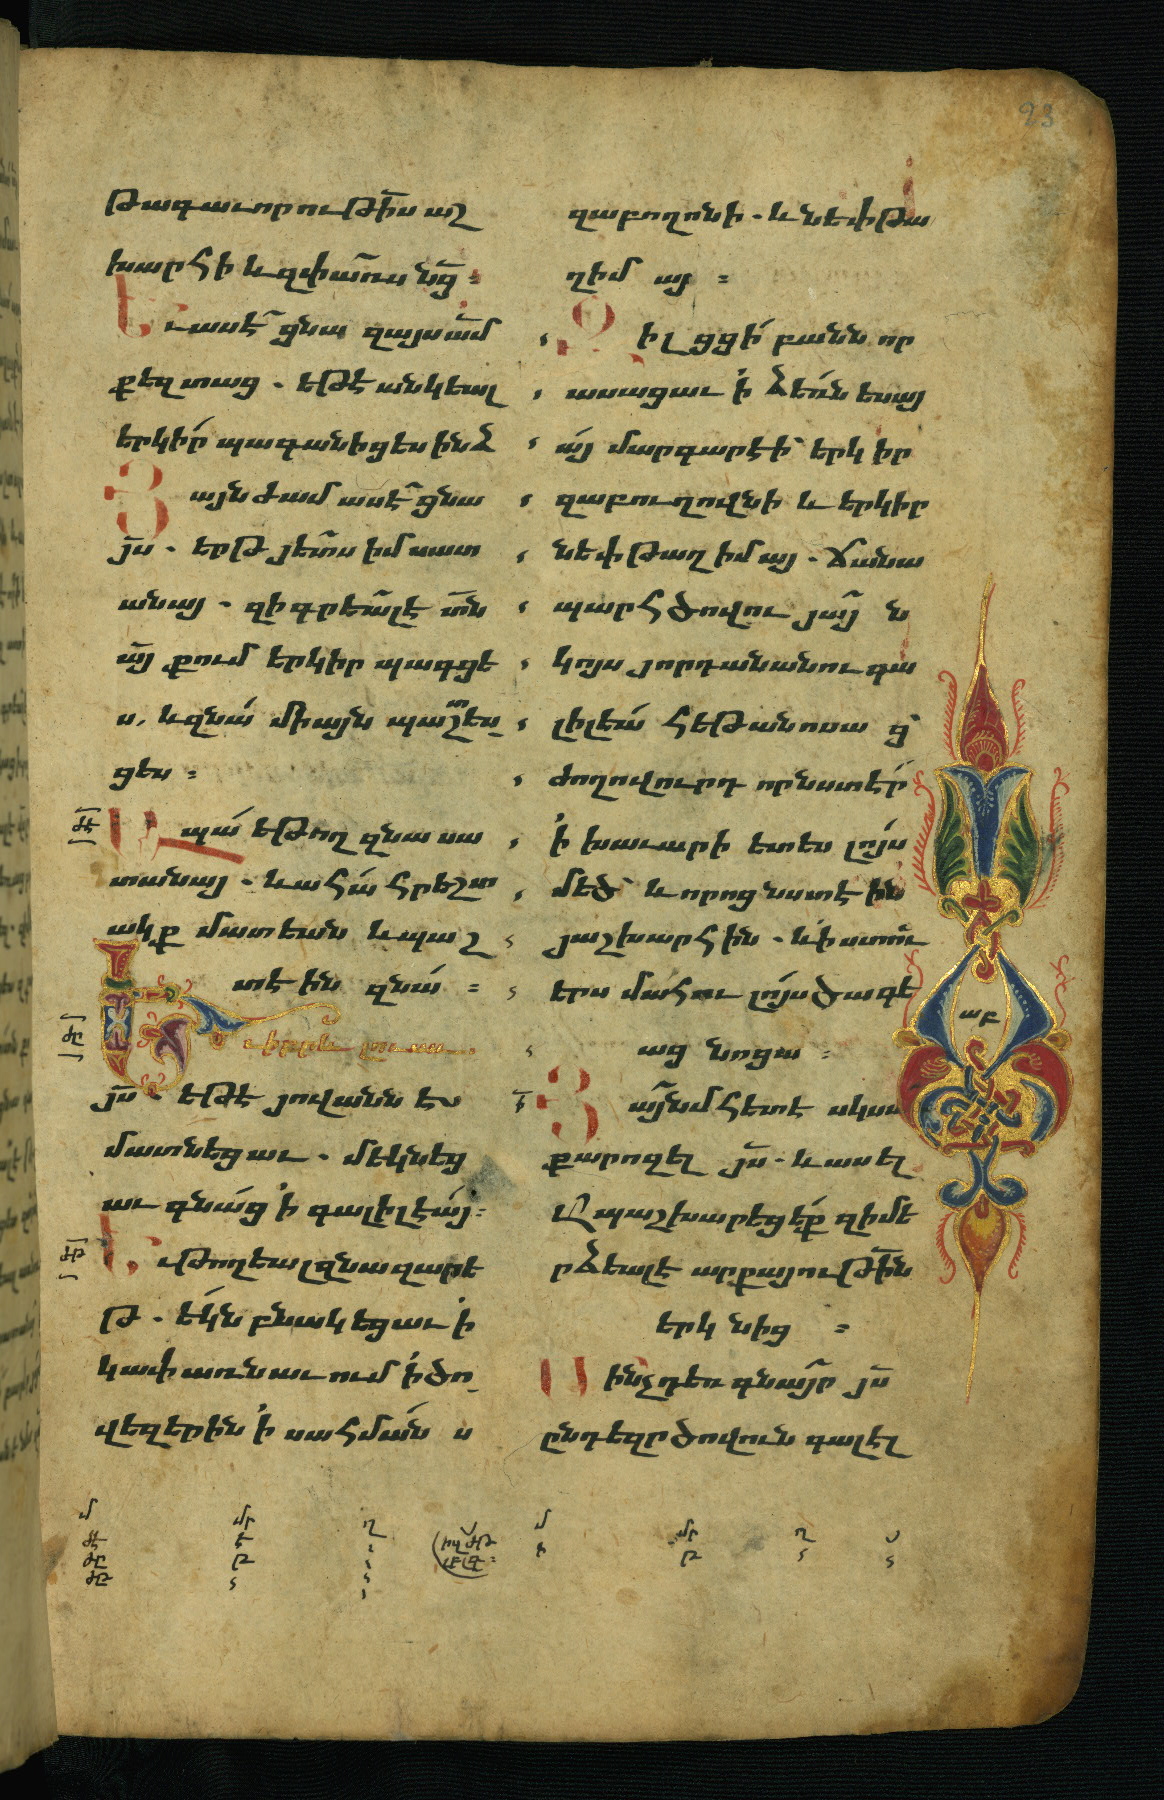 23
թագաւորութի̃ս աշ
խարհի և զփա̃ռս նց̃ ։
Եւ ասէ̃ ցնա զայսա̃մ
քեզ տաց . եթէ անկեալ
երկի́ր պագանիցես ինձ
Յայնժամ ասէ̃ ցնա
յ̃ս . երթ յետս̃ իմ սատ
անայ . զի գրեա̃լ է տ̃ն
ա̃յ քում երկիր պագցե
ս . և զնա́ միայն պաշ̃տես
ցես ։
ժէ
Ապա́ եթող զնա սա
տանայ . և ահա́ հրեշտ
ակք մատեան և պաշ
տէին զնա́ ։
ժը
Եւ իբրև լուաւ
յ̃ս . եթէ յովանն էս
մատնեցաւ . մեկնեց
աւ գնա́ց ի գալիլեա́յ ։
ժթ
Եւ թողեալ զնազարե
թ . ե́կն բնակեցաւ ի
կափառնաւում ի ծո
վեզերին ի սահմա́ն ս
զաբողոնի . և նեփթա
ղիմ այ ։
Զի լցցի́ բանն որ
ասացաւ ի ձեռն եսայ
ա́յ մարգարէի՝ երկիր
զաբուղովնի և երկիր
նեփթաղիմայ . ճանա
պարհ ծովու յա̃յ ն
կոյս յորդանանու գա
լիլեա́ հեթանոսա ց՝
ժողովուրդ որ նստէ́ր
ի խաւարի ետես լո́յս
մեծ՝ և որոց նստէին
յաշխարհին . և ի ստու
երս մահու լո́յս ծագե
աց նոցա ։
Յա̃յնմհետէ սկսա
քարոզել յ̃ս . և ասել
Ապաշխարեցէ́ք զի մե
րձեալ է արքայութի̃ն
երկնից ։
Մինչդեռ գնայր̃ յ̃ս
ընդ եզր ծովուն գալել
աբ
մ
ժէ
ժը
ժթ
մր
է
թ
ղ
մ
ի
մր
թ
ղ